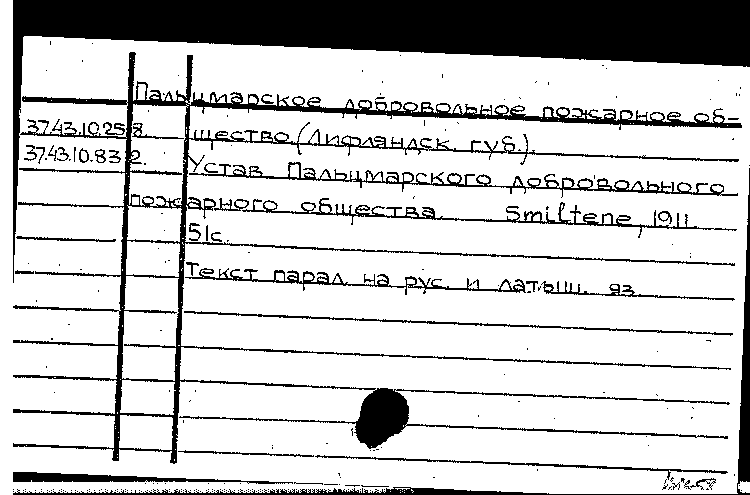 Пальцмарское добровольное пожарное об-
37.43.10.258. щество (Лифляндск. губ.).
37.43.10.832. Устав Пальцмарского добровольного
пожарного общества. Smiltene, 1911.
51с.
Текст парал. на рус. и латыш. яз.